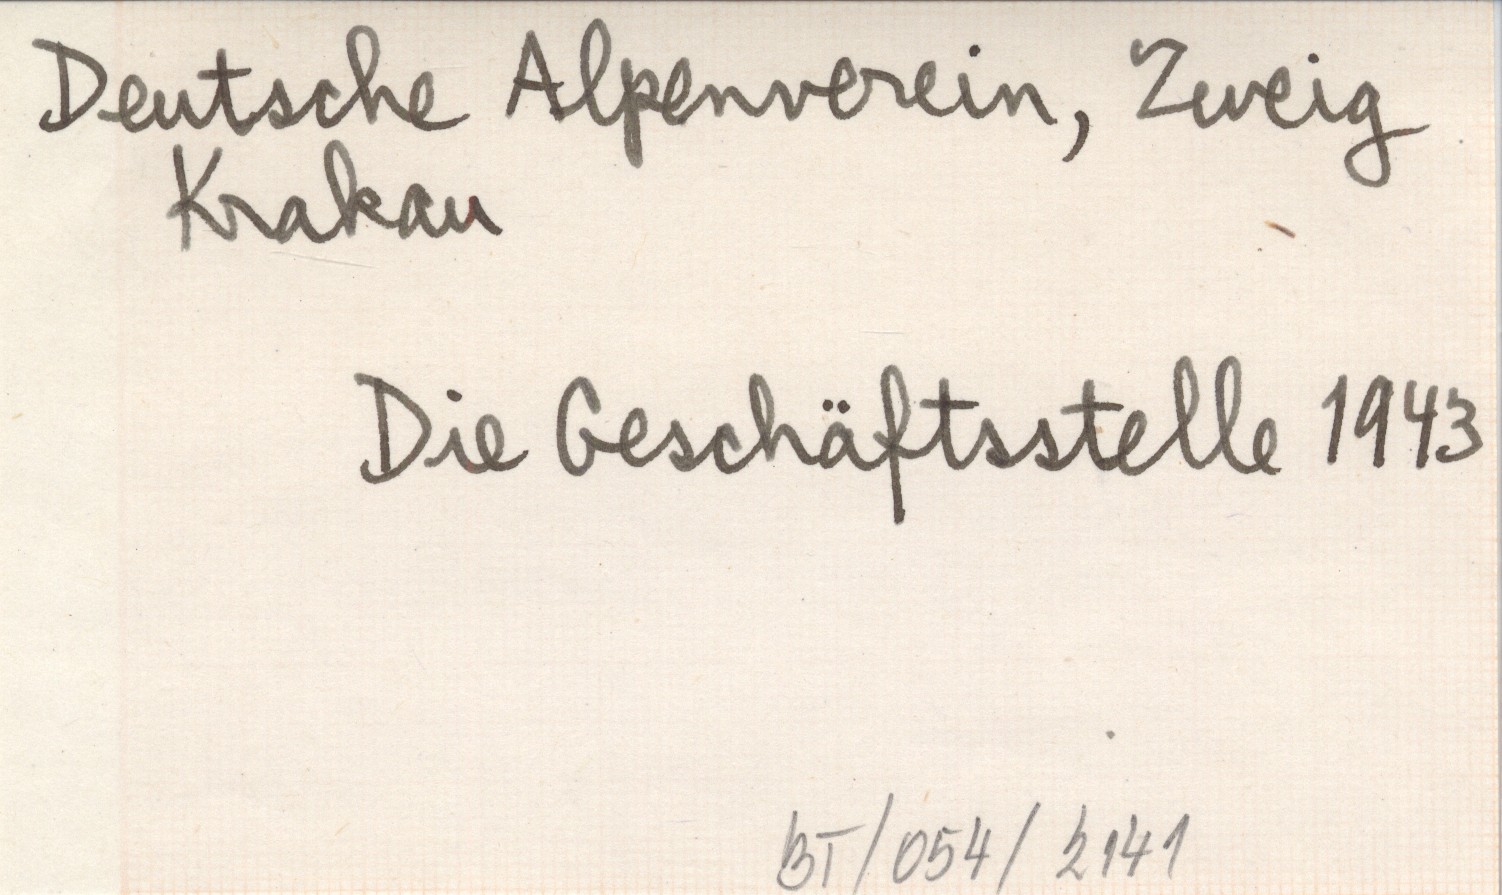 Deutsche Alpenverein, Zweig
Krakau
Die Geschäftsstelle 1943
BT/054/2141